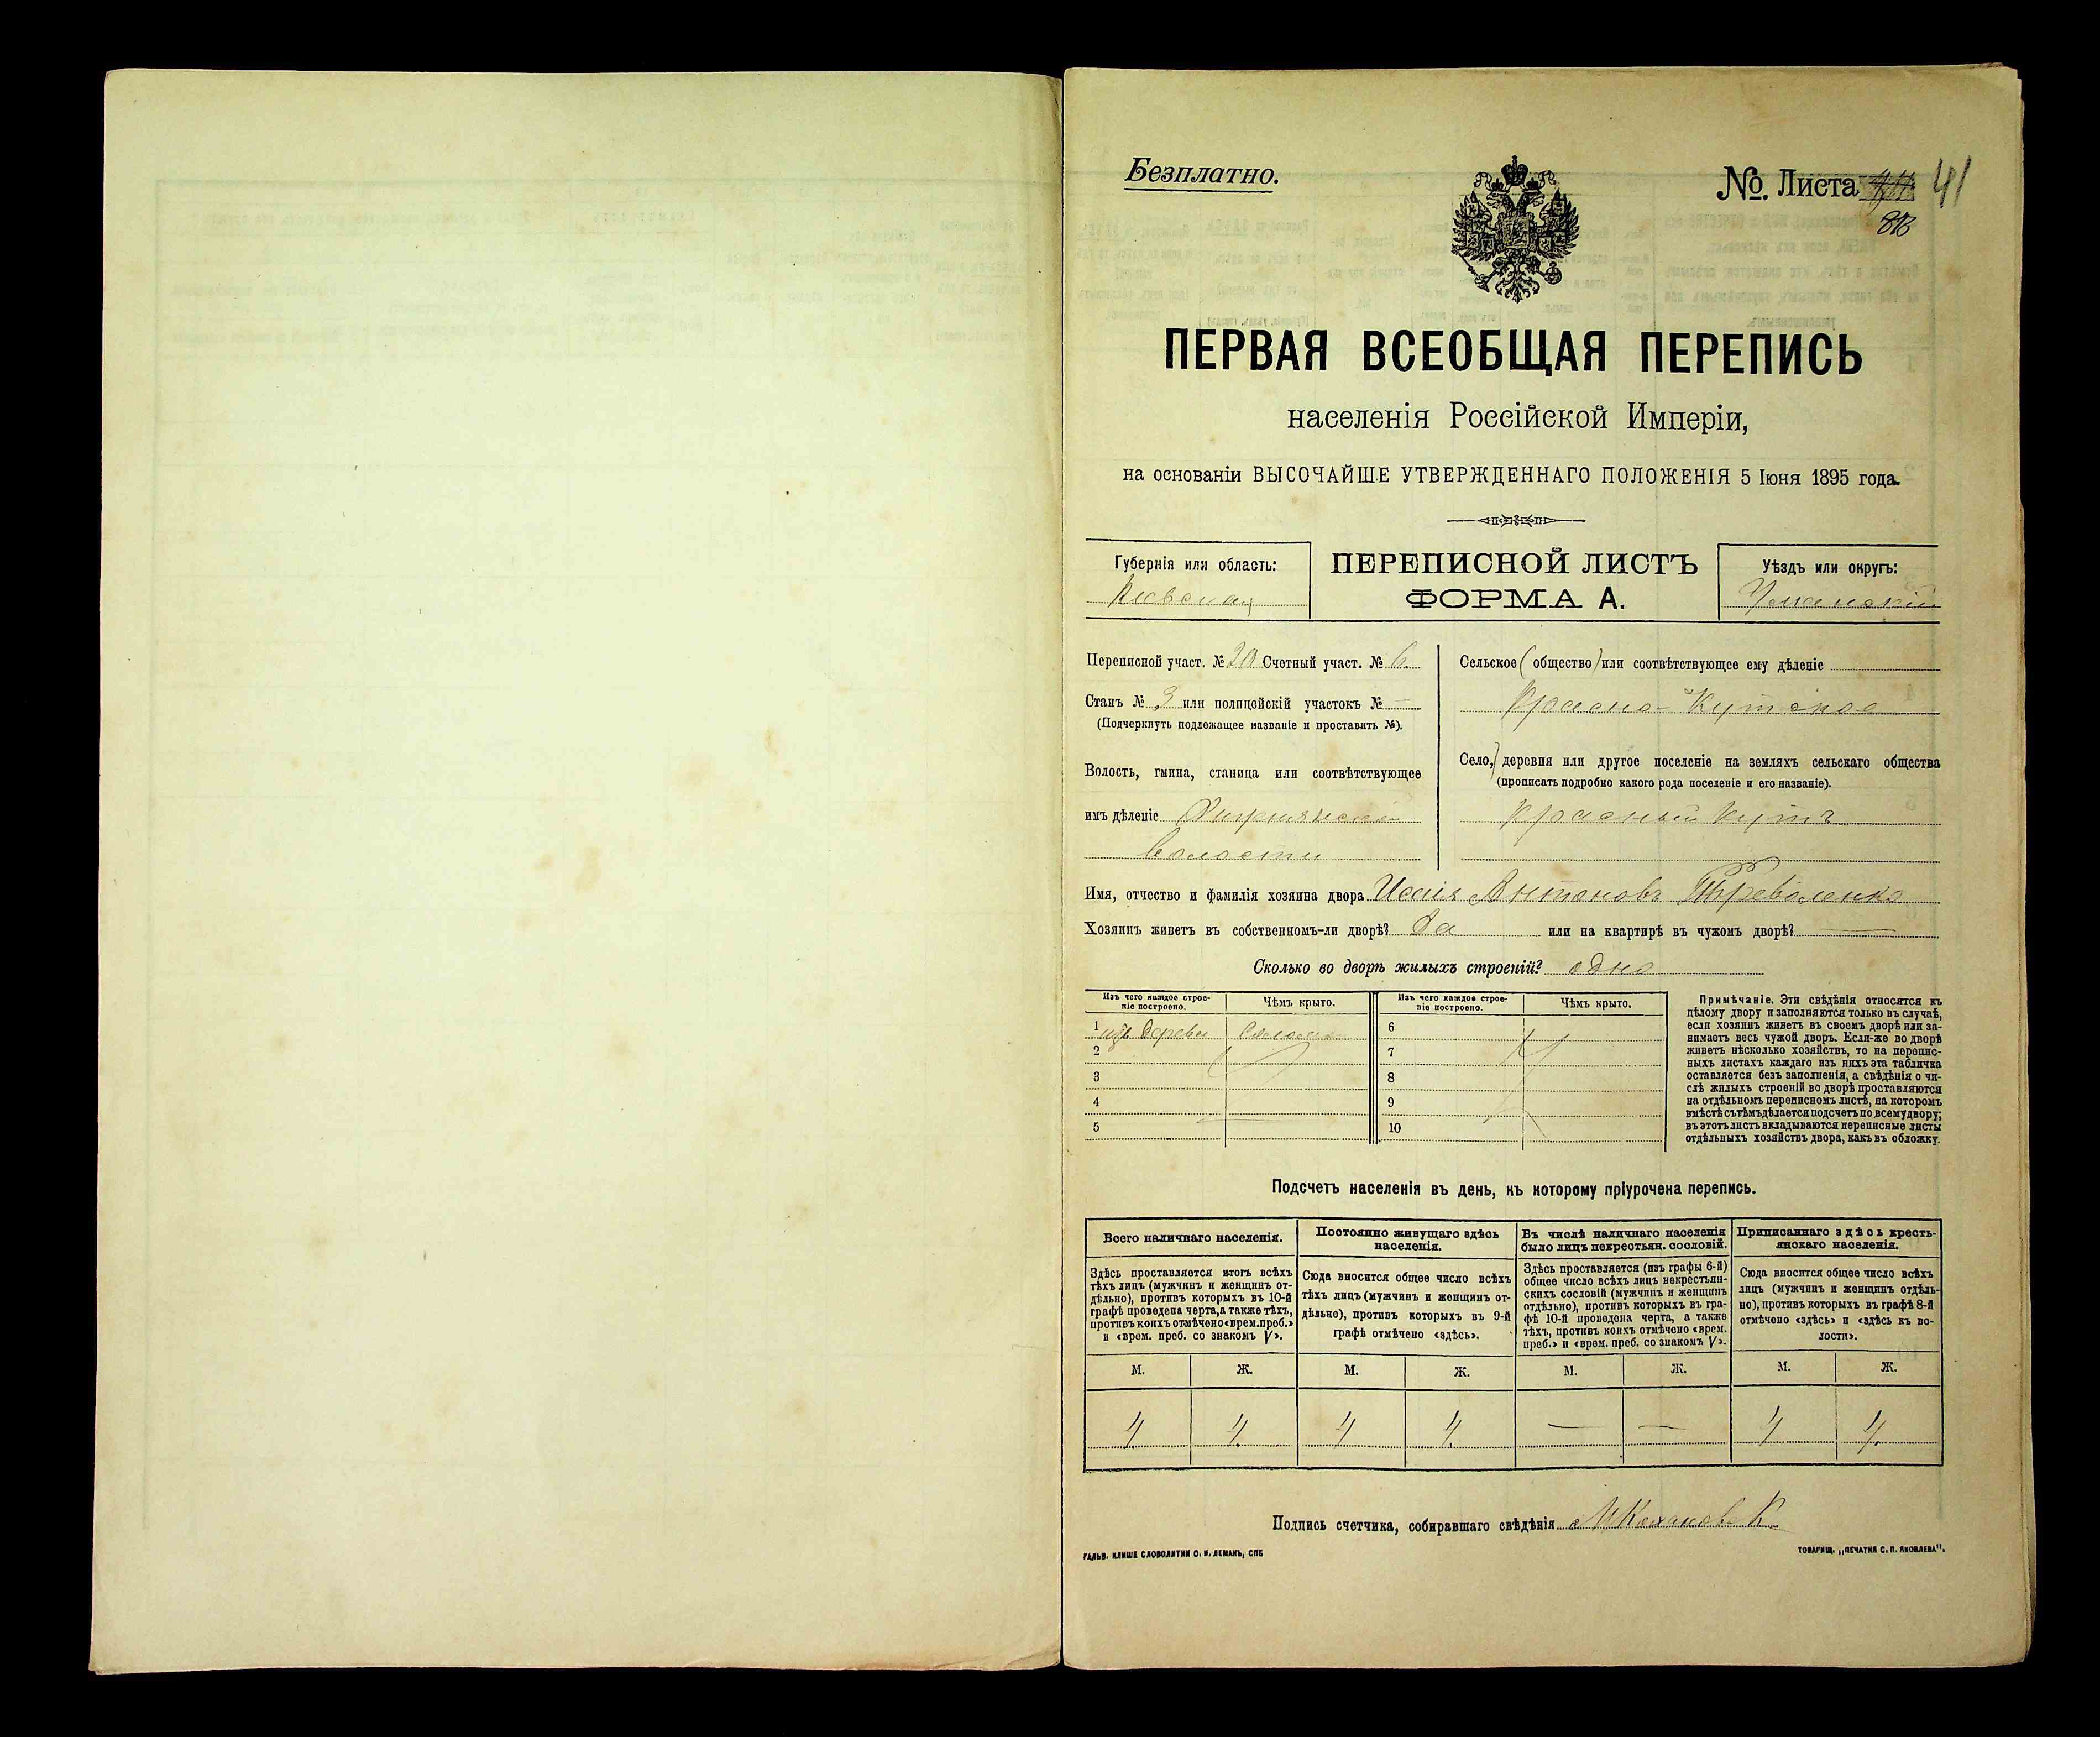 Безплатно.
№. Листа 41
ПЕРВАЯ ВСЕОБЩАЯ ПЕРЕПИСЬ
населенія Россійской Имперіи,
на основаніи ВЫСОЧАЙШЕ УТВЕРЖДЕННАГО ПОЛОЖЕНІЯ 5 Іюня 1895 года.
Губернія или область:
Кіевская
ПЕРЕПИСНОЙ ЛИСТЪ
ФОРМА А.
Уѣздъ или округъ:
Уманскій
Переписной участ. № 20 Счетный участ. № 6
Станъ № 3 или полицейскій участокъ № —
(Подчеркнуть подлежащее названіе и проставить №).
Волость, гмина, станица или соотвѣтствующее
имъ дѣленіе
волости
Сельское (общество) или соотвѣтствующее ему дѣленіе
Красно-Кутское
Село, деревня или другое поселеніе на земляхъ сельскаго общества
(прописать подробно какого рода поселеніе и его названіе).
Красный Кутъ
Имя, отчество и фамилія хозяина двора Исаія Антоновъ
Хозяинъ живетъ въ собственномъ-ли дворѣ? Да или на квартирѣ въ чужомъ дворѣ? —
Сколько во дворѣ жилыхъ строеній? одно
Изъ чего каждое строе-
ніе построено.
Чѣмъ крыто.
Изъ чего каждое строе-
ніе построено.
Чѣмъ крыто.
1 изъ дерева Соломой
2
3
4
5
6
7
8
9
10
Примѣчаніе. Эти свѣдѣнія относятся къ
цѣлому двору и заполняются только въ случаѣ,
если хозяинъ живетъ въ своемъ дворѣ или за-
нимаетъ весь чужой дворъ. Если-же во дворѣ
живетъ нѣсколько хозяйствъ, то на перепис-
ныхъ листахъ каждаго изъ нихъ эта табличка
оставляется безъ заполненія, а свѣдѣнія о чи-
слѣ жилыхъ строеній во дворѣ проставляются
на отдѣльномъ переписномъ листѣ, на которомъ
вмѣстѣ съ тѣмъ дѣлается подсчетъ по всему двору;
въ этотъ листъ вкладываются переписные листы
отдѣльныхъ хозяйствъ двора, какъ въ обложку.
Подсчетъ населенія въ день, къ которому пріурочена перепись.
Всего наличнаго населенія.
Постоянно живущаго здѣсь
населенія.
Въ числѣ наличнаго населенія
было лицъ некрестьян. сословій.
Приписаннаго здѣсь кресть-
янскаго населенія.
Здѣсь проставляется итогъ всѣхъ
тѣхъ лицъ (мужчинъ и женщинъ от-
дѣльно), противъ которыхъ въ 10-й
графѣ проведена черта, а также тѣхъ,
противъ коихъ отмѣчено «врем. преб.»
и «врем. преб. со знакомъ V».
Сюда вносится общее число всѣхъ
тѣхъ лицъ (мужчинъ и женщинъ от-
дѣльно), противъ которыхъ въ 9-й
графѣ отмѣчено «здѣсь».
Здѣсь проставляется (изъ графы 6-й)
общее число всѣхъ лицъ некрестьян-
скихъ сословій (мужчинъ и женщинъ
отдѣльно), противъ которыхъ въ гра-
фѣ 10-й проведена черта, а также
тѣхъ, противъ коихъ отмѣчено «врем.
преб.» и «врем. преб. со знакомъ V».
Сюда вносится общее число всѣхъ
лицъ (мужчинъ и женщинъ отдѣль-
но), противъ которыхъ въ графѣ 8-й
отмѣчено «здѣсь» и «здѣсь къ во-
лости».
М. Ж. М. Ж. М. Ж. М. Ж.
4 4 4 4 — — 4 4
Подпись счетчика, собиравшаго свѣдѣнія
ГАЛЬВ. КЛИШЕ СЛОВОЛИТНИ О. И. ЛЕМАНЪ, СПБ
ТОВАРИЩ. „ПЕЧАТНЯ С. П. ЯКОВЛЕВА".